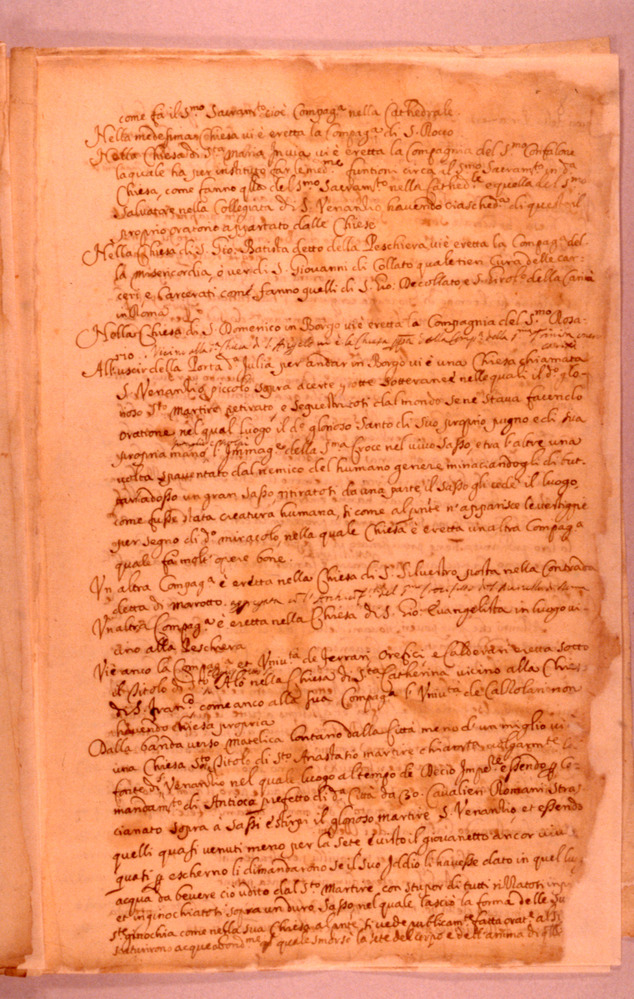 come fa il S.mo Sacram.to cioè Compag.a nella Cathedrale
Nella medesima Chiesa vi è eretta la Compag.a di S. Rocco
Nella Chiesa di S.ta Maria in via vi è eretta la Compagnia del S.mo Confalone
la quale ha per instituto far le med.me funtioni circa il S.mo Sacram.to in d.a
Chiesa, come fanno q.lla del S.mo Sacram.to nella Cathed.le e quella del S.mo
Salvatore nella Collegiata di S. Venantio havendo ciasched.a di queste il
proprio oratorio appartato dalle Chiese
Nella Chiesa di S. Gio: Batista detto della Peschiera, vi è eretta la Compag.a del
la Misericordia, ò ver di S. Giovanni di Collato quale tien cura delle car-
ceri, e Carcerati come fanno quelli di S. Gio: Decollato, e S. Girol.o della Carità
in Roma
Nella Chiesa di S. Domenico in Borgo vi è eretta la Compagnia del S.mo Rosa-
rio.
All'uscir della Porta d.a Julia per andar in Borgo vi è una Chiesa chiamata
S. Venantio piccolo sopra a certe grotte sotteranee nelle quali il d.o glo-
rioso S.to Martire retirato, e seguestratosi dal mondo se ne stava facendo
oratione nel qual luogo il d.o glorioso Santo di suo proprio pugno e di sua
propria mano l'Immag.e della S.ma Croce nel vivo sasso, e tra l'altre una
volta spaventato dal nemico del humano genere minaciandogli di but-
tar adosso un gran sasso ritiratosi da una parte il sasso gli cede il luogo,
come fusse stata creatura humana, si come al p.nte n'apparisce le vestigie
per segno di d.o miracolo, nella quale Chiesa è eretta un altra Compag.a
quale fa molte opere bone.
Un altra Compag.a è eretta nella Chiesa di S.to Silvestro posta nella Contrada
detta di Marotto.
Un altra Compag.a è eretta nella Chiesa di S. Gio: Evangelista in luogo vi-
cino alla Peschera
Vi è anco la Compag.a et Univ.tà de Ferrari, Orefici, e Calderari eretta sotto
il titolo di S.to Alò nella Chiesa di S.ta Catherina vicino alla Chiesa
di S. Fran.co come anco alla sua Compag.a l'Univ.tà de Callolari non
havendo Chiesa propria
Dalla banda verso Matelica lontano dalla Città meno d'un miglio vi è
una Chiesa S.to titolo di S.to Anastatio martire chiam.ta vulgarm.te le
fonte di S. Venantio nel quale luogo al tempo de Decio Imp.re essendo p le-
mandam.to di Antioco prefetto di d.a Città da 30. Cavalieri Romani stras-
cianato sopra à sassi e stirpi il glorioso martire S. Venantio et essendo
quelli quasi venuti meno per la sete e visto il giovanetto ancor
quasi p escherno li dimandarono se il suo Iddio li havesse dato in quel
acqua da bevere ciò udito dal S.to Martire, con stupor di tutti rittatosi
et inginochiatosi sopra un duro sasso nel quale lasciò la forma delle
S.te ginochia come nella sua Chiesa al p.nte si vede publicam.te fatta orat.e
scaturirono acque abond.me p quale smorsò la sete del corpo e dell'anima di